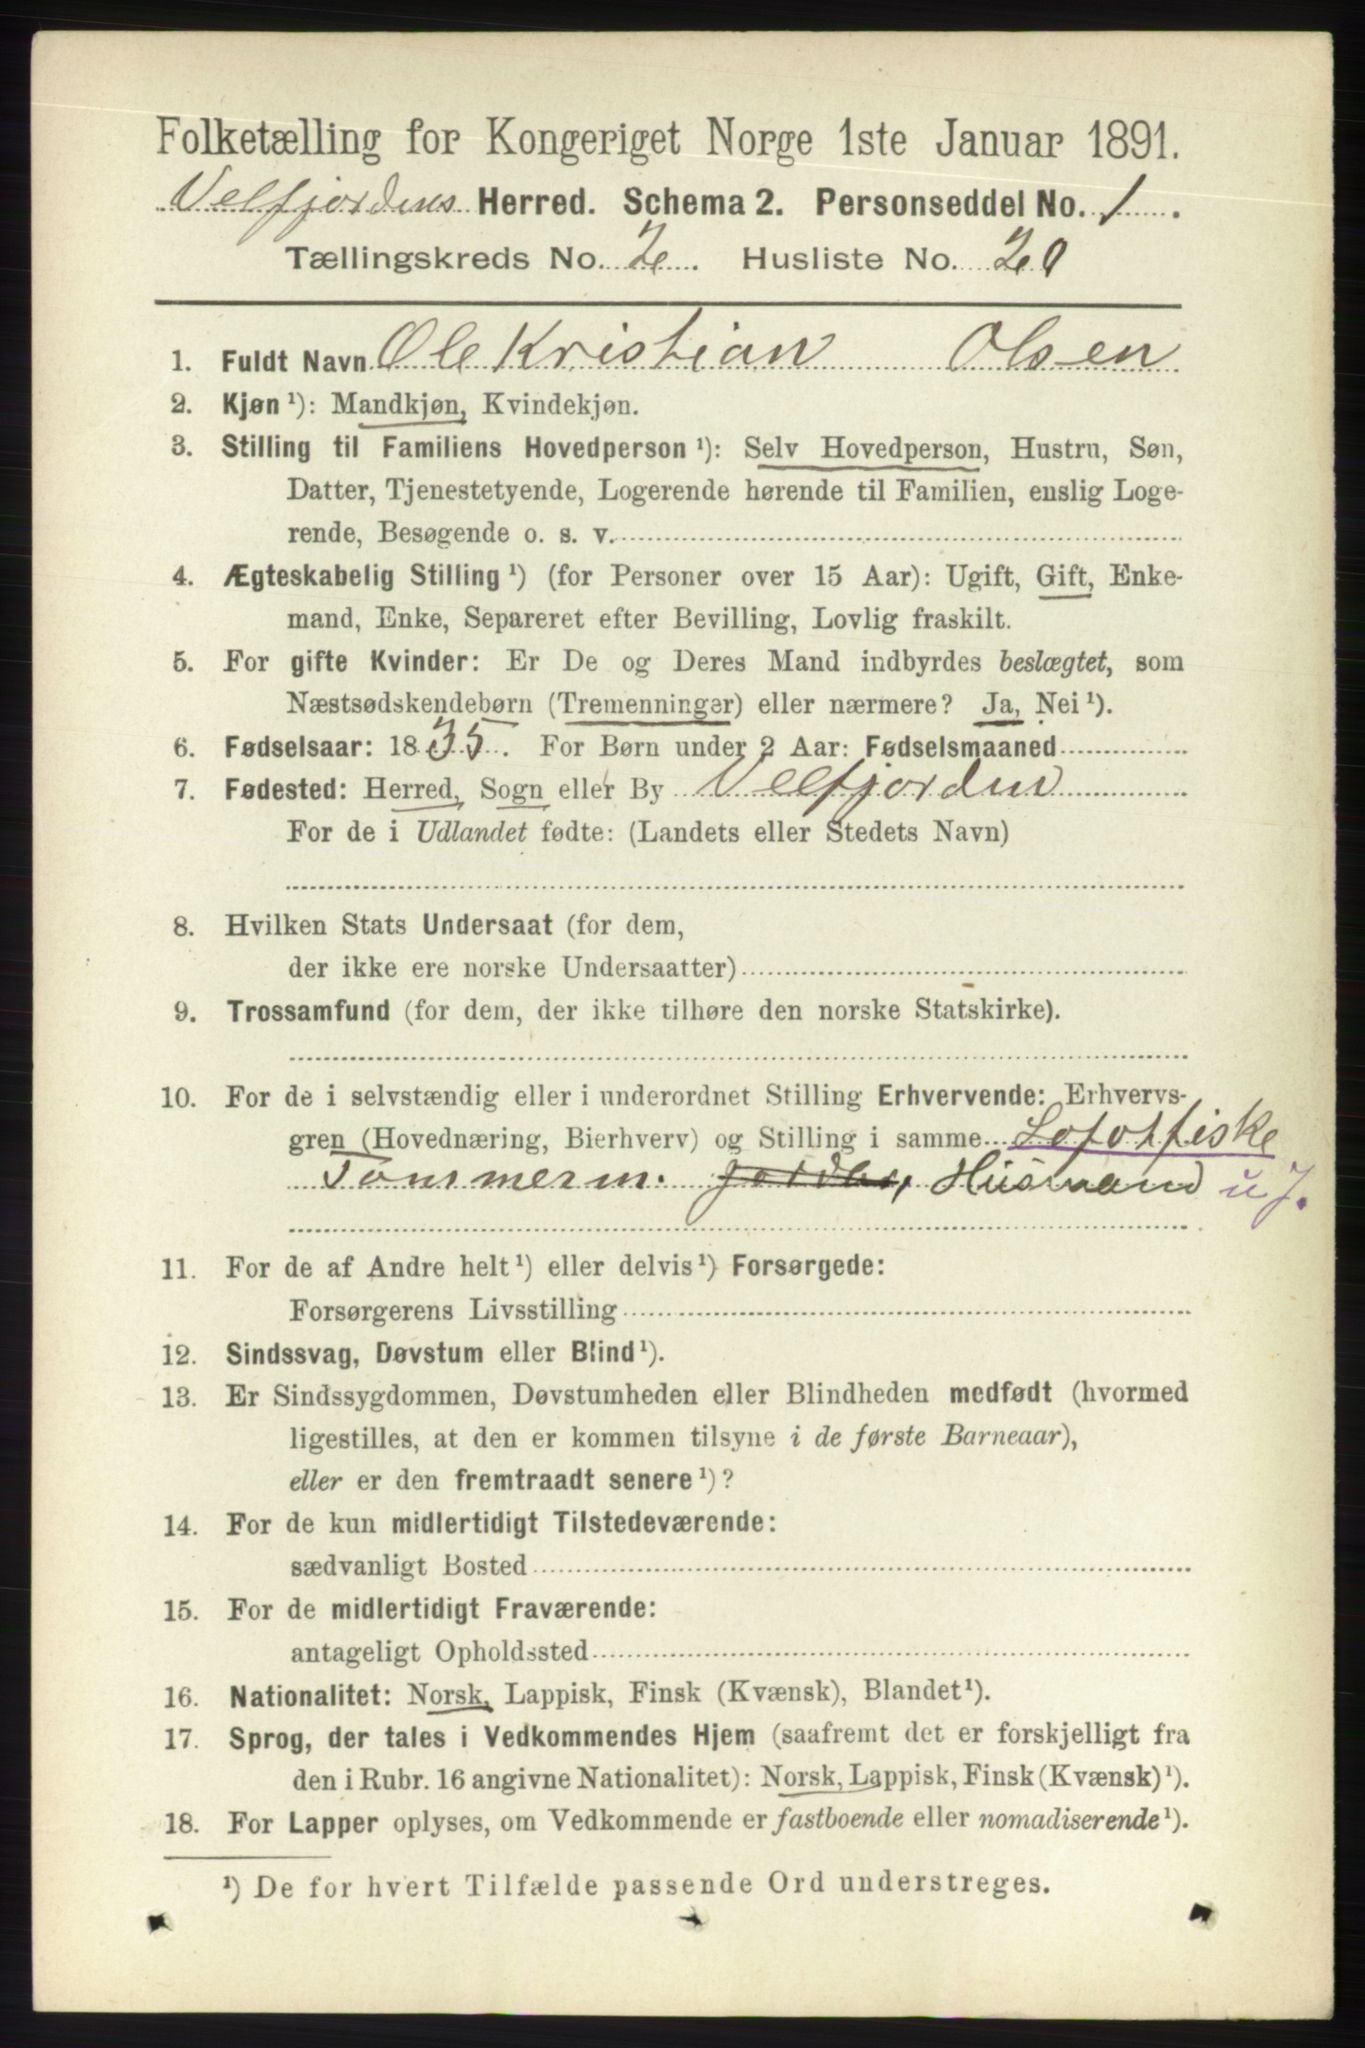 Folketælling for Kongeriget Norge 1ste Januar 1891.
Velfjordens Herred. Schema 2. Personseddel No. 1.
Tællingskreds No. 2. Husliste No. 20
1. Fuldt Navn Ole Kristian Olsen
2. Kjøn¹): Mandkjøn, Kvindekjøn.
3. Stilling til Familiens Hovedperson¹): Selv Hovedperson, Hustru, Søn,
Datter, Tjenestetyende, Logerende hørende til Familien, enslig Loge-
rende, Besøgende o. s. v.
4. Ægteskabelig Stilling¹) (for Personer over 15 Aar): Ugift, Gift, Enke-
mand, Enke, Separeret efter Bevilling, Lovlig fraskilt.
5. For gifte Kvinder: Er De og Deres Mand indbyrdes beslægtet, som
Næstsødskendebørn (Tremenninger) eller nærmere? Ja, Nei¹).
6. Fødselsaar: 1835. For Børn under 2 Aar: Fødselsmaaned
7. Fødested: Herred, Sogn eller By Velfjorden
For de i Udlandet fødte: (Landets eller Stedets Navn)
8. Hvilken Stats Undersaat (for dem,
der ikke ere norske Undersaatter)
9. Trossamfund (for dem, der ikke tilhøre den norske Statskirke).
10. For de i selvstændig eller i underordnet Stilling Erhvervende: Erhvervs-
gren (Hovednæring, Bierhverv) og Stilling i samme Lofotfiske
Tømmerm. Jordbr, Husmand u J.
11. For de af Andre helt¹) eller delvis¹) Forsørgede:
Forsørgerens Livsstilling
12. Sindssvag, Døvstum eller Blind¹).
13. Er Sindssygdommen, Døvstumheden eller Blindheden medfødt (hvormed
ligestilles, at den er kommen tilsyne i de første Barneaar),
eller er den fremtraadt senere¹)?
14. For de kun midlertidigt Tilstedeværende:
sædvanligt Bosted
15. For de midlertidigt Fraværende:
antageligt Opholdssted
16. Nationalitet: Norsk, Lappisk, Finsk (Kvænsk), Blandet¹).
17. Sprog, der tales i Vedkommendes Hjem (saafremt det er forskjelligt fra
den i Rubr. 16 angivne Nationalitet): Norsk, Lappisk, Finsk (Kvænsk)¹).
18. For Lapper oplyses, om Vedkommende er fastboende eller nomadiserende¹).
¹) De for hvert Tilfælde passende Ord understreges.